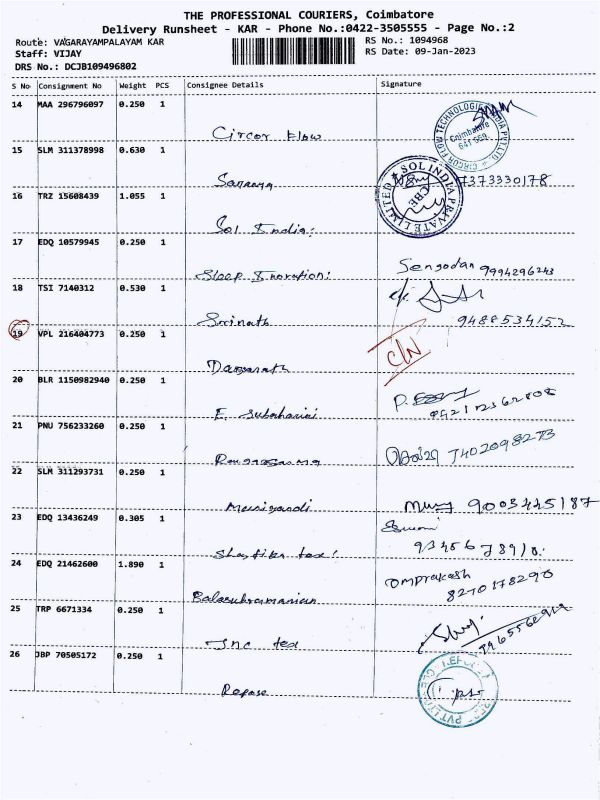 THE PROFESSIONAL COURIERS, Coimbatore
Delivery Runsheet - KAR - Phone No.:0422-3505555 - Page No.:2
Route: VAGARAYAMPALAYAM KAR
RS No.: 1094968
Staff: VIJAY
RS Date: 09-Jan-2023
DRS No.: DCJB109496802
S No Consignment No Weight PCS Consignee Details Signature
14 MAA 296796097 0.250 1
Circor Flow
CIRCOR FLOW TECHNOLOGIES INDIA PVT LTD Coimbatore
15 SLM 311378998 0.630 1
Saranya 7373330178
SOL INDIA PRIVATE LIMITED CBE
16 TRZ 15608439 1.055 1
Sol India:
17 EDQ 10579945 0.250 1
Sleep Inovation: Sengodan 9994296243
18 TSI 7140312 0.530 1
Srinath 9488534152
19 VPL 216404773 0.250 1
C/N
Dasarath
20 BLR 1150982940 0.250 1
21 PNU 756233260 0.250 1
7402098273
22 SLM 311293731 0.250 1
Muniyandi 9003445187
23 EDQ 13436249 0.305 1
9345678910
24 EDQ 21462600 1.890 1
Balasubramanian omprakash 8270178290
25 TRP 6671334 0.250 1
Jnc tex
26 JBP 70505172 0.250 1
Repose